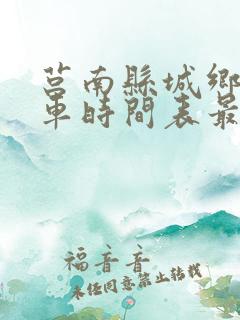 莒南縣城鄉
車時間表最
福音音
未经同意禁止转载